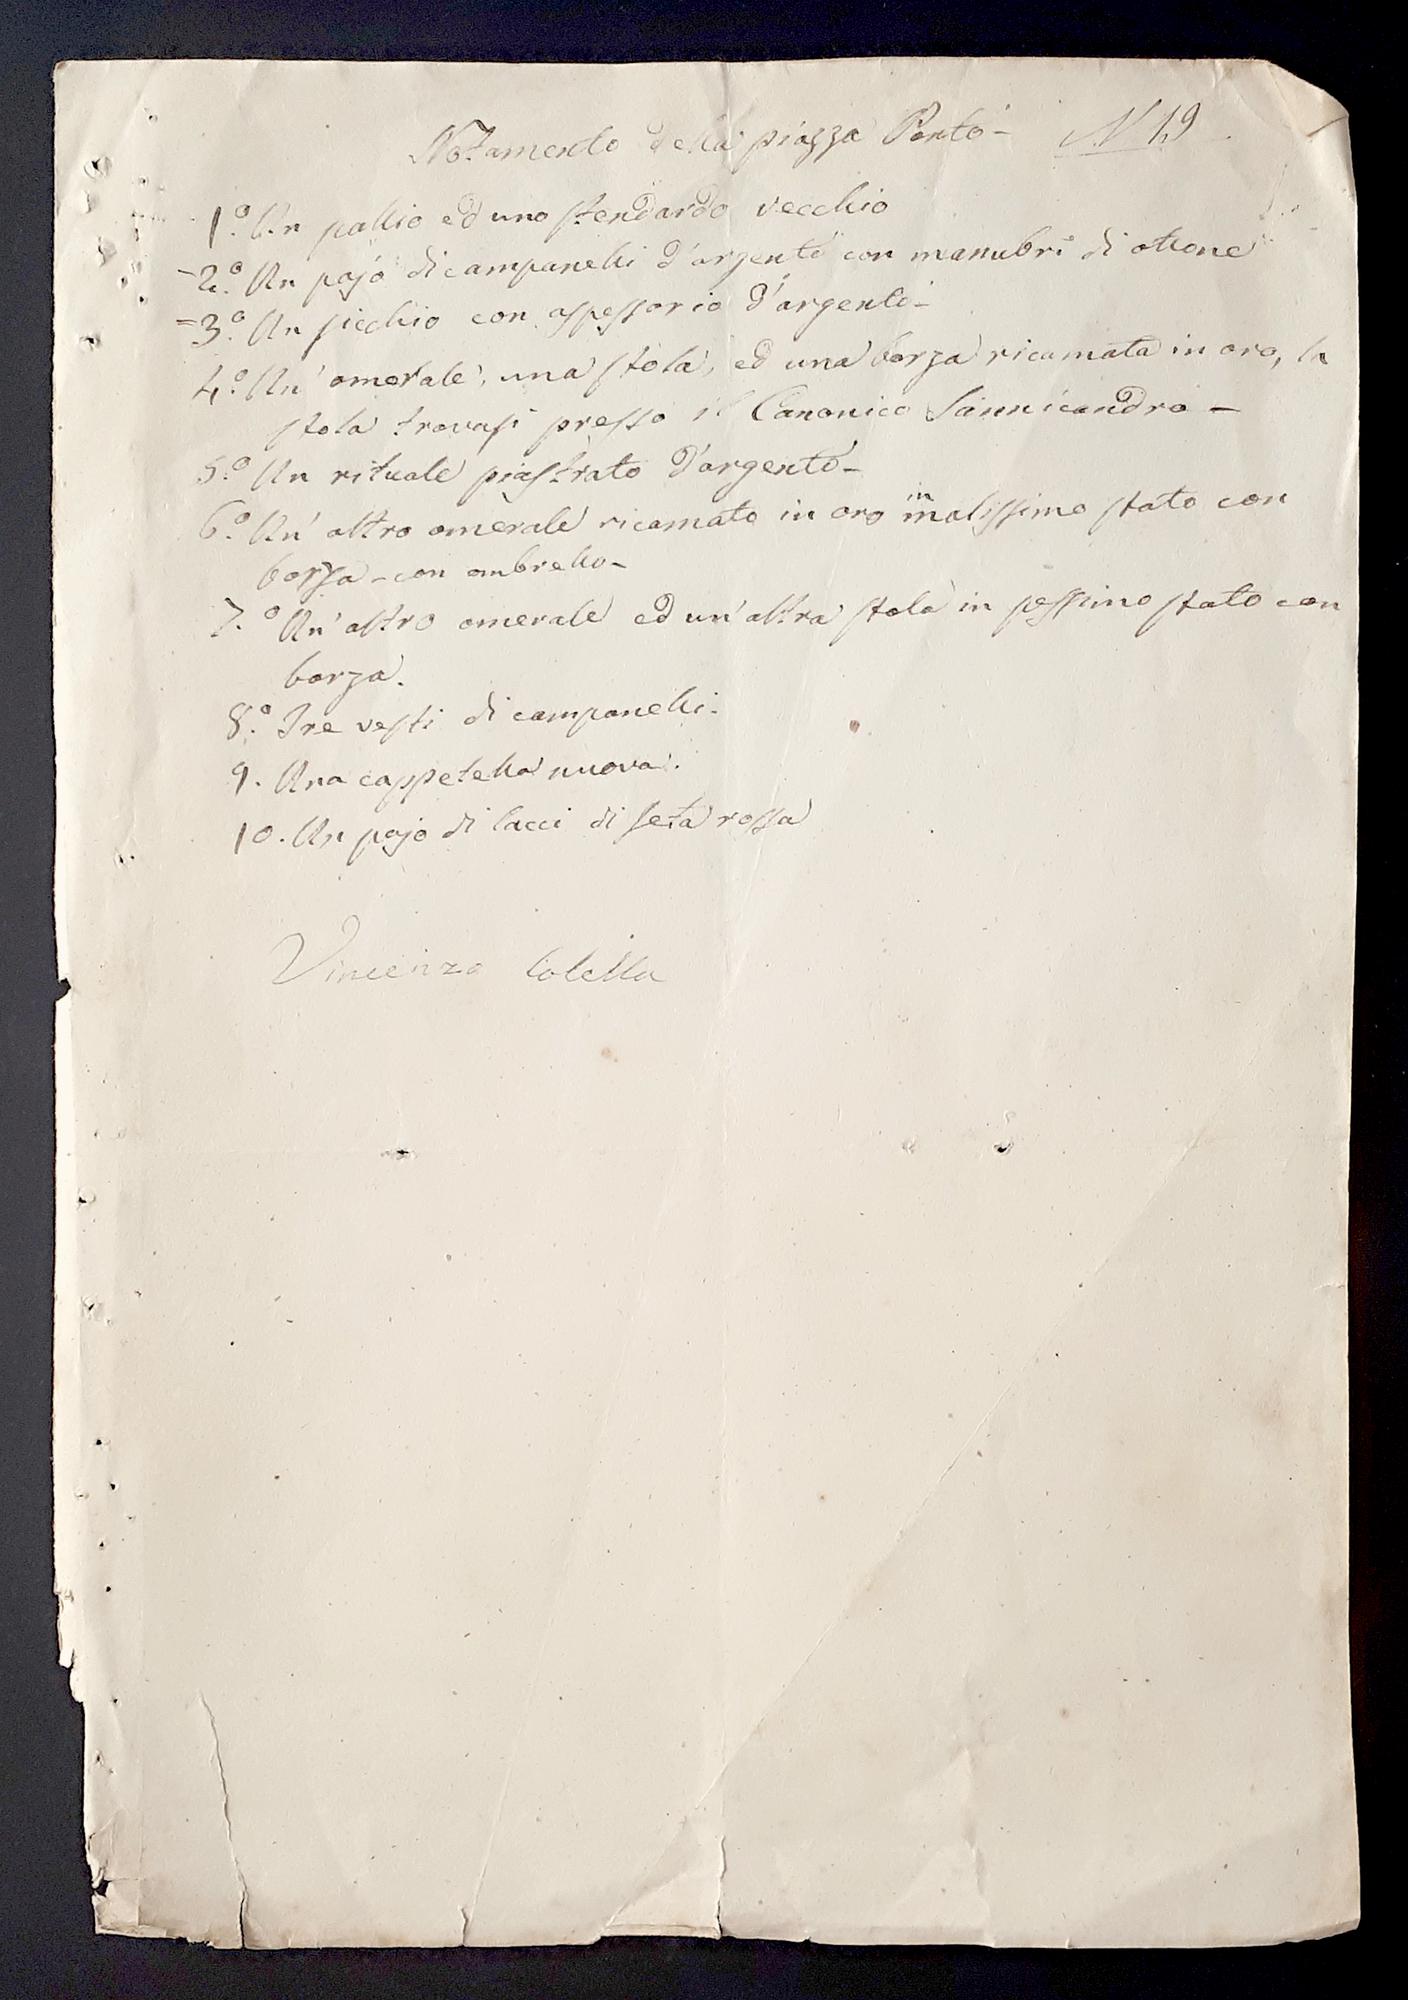 Notamento della piazza Ponte - N 19
1.° Un pallio ed uno stendardo vecchio
- 2.° Un pajo di campanelli d'argento con manubri di ottone
= 3.° Un sicchio con aspessorio d'argento -
4.° Un' omerale, una stola, ed una borza ricamata in oro, la
stola trovasi presso il Canonico Sannicandro -
5.° Un rituale piastrato d'argento -
6.° Un' altro omerale ricamato in oro in malissimo stato con
borza - con ombrello -
7.° Un' altro omerale ed un' altra stola in pessimo stato con
borza.
8.° Tre vesti di campanelli.
9. Una cappetella nuova.
10. Un pajo di lacci di seta rossa
Vincenzo Colella